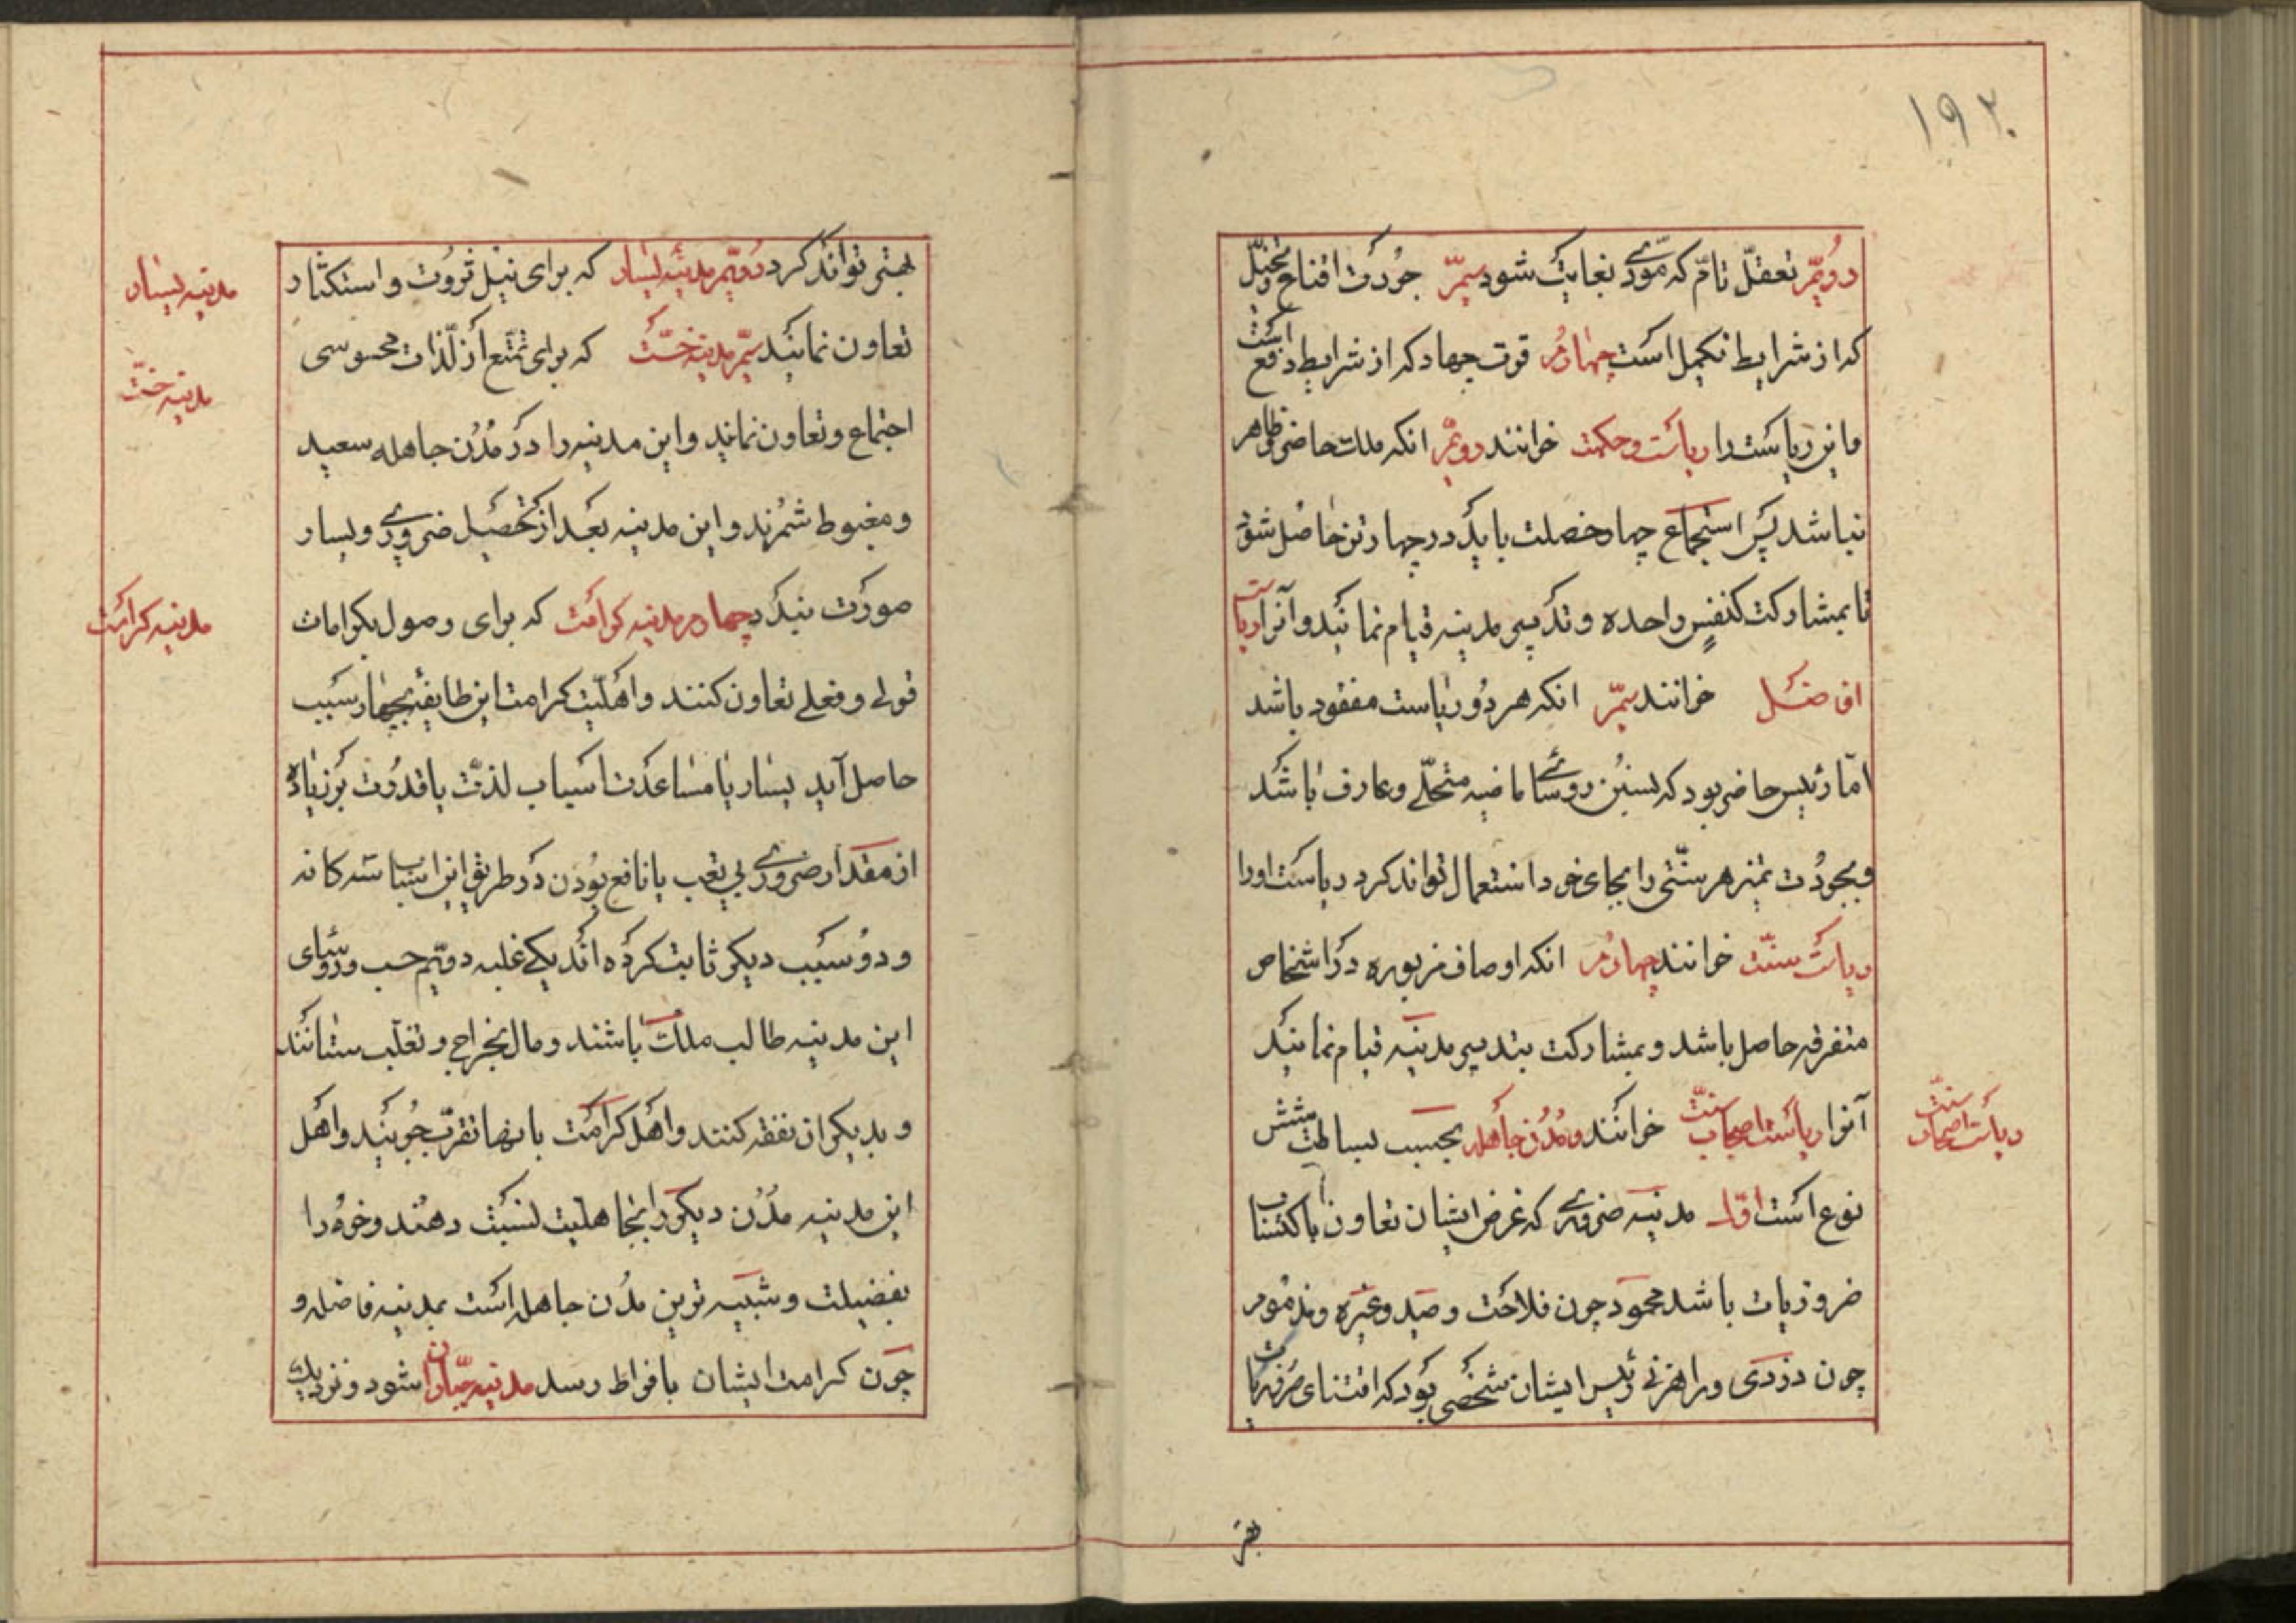 ۱۹۲
دویّم تعقلّ تامّ که مؤدّی بغایت شود سیمّ جودت اقناع و تخییل
که از شرایط تکمیل است چهارم قوت جهاد که از شرایط دفع است
و این ریاست را ریاست و حکمت خوانند دویمّ انکه ملک حاضر و ظاهر
نباشد پس استجماع چهار خصلت باید در چهار تن حاصل شود
تا بمشارکت کنفسٍ واحده و تدبیر مدینه قیام نمایند و آنرا ریاست
افاضل خوانند سیمّ انکه هر دو ریاست مفقود باشد
امّا رئیس حاضر بود که بسنن روسآئ ماضیه متحلّی و عارف باشد
و بجودت تمیز هر سنّتی را بجای خود استعمال تواند کرد ریاست او را
ریاست سنّت خوانند چهارم انکه اوصاف مزبوره در اشخاص
متفرقه حاصل باشد و بمشارکت بتدبیر مدینه قیام نمایند
آنرا ریاست اصحاب سنّت خوانند و مُدُن جاهله بحسب بساطت شش
ریاست اصحاب سنّت
نوع است اوّل مدینه ضروری که غرض ایشان تعاون باکتساب
ضروریات باشد محمود چون فلاحت و صید و غیره و مذموم
چون دزدی و راهزنی رئیس ایشان شخصی بود که اقتنای
بهتر
بهتر تواند کرد دویّم مدینهٔ یسار که برای نیل ثروت و استکثار
مدینه یسار
تعاون نمایند سیّم مدینه خسّت که برای تمتّع از لذّات محسوسی
مدینه خسّت
اجتماع و تعاون نمایند و این مدینه را در مُدُن جاهله سعید
و مغبوط شمُرند و این مدینه بعد از تحصیل ضروری و یسار
صورت بندد چهارم مدینه کرامت که برای وصول بکرامات
مدینه کرامت
قولی و فعلی تعاون کنند و اهلیّت کرامت این طایفه بچهار سبب
حاصل آید یسار یا مساعدت اسباب لذّت یا قدرت بر زیاده
از مقدار ضروری بی تعب یا نافع بودن در طریق این اسباب سه کانه
و دو سبب دیکر ثابت کرده اند یکی غلبه دویّم حسب و روسآی
این مدینه طالب ملک باشند و مال بخراج و تغلّب ستانند
و بدیکران نفقه کنند و اهل کرامت بانها تقرّب جویند و اهل
این مدینه مُدُن دیکر را بجاهلیت نسبت دهند و خود را
بفضیلت و شبیه ترین مُدُن جاهله است بمدینه فاضله و
چون کرامت ایشان بافراط رسد مدینه جبّاران شود و نزدیک